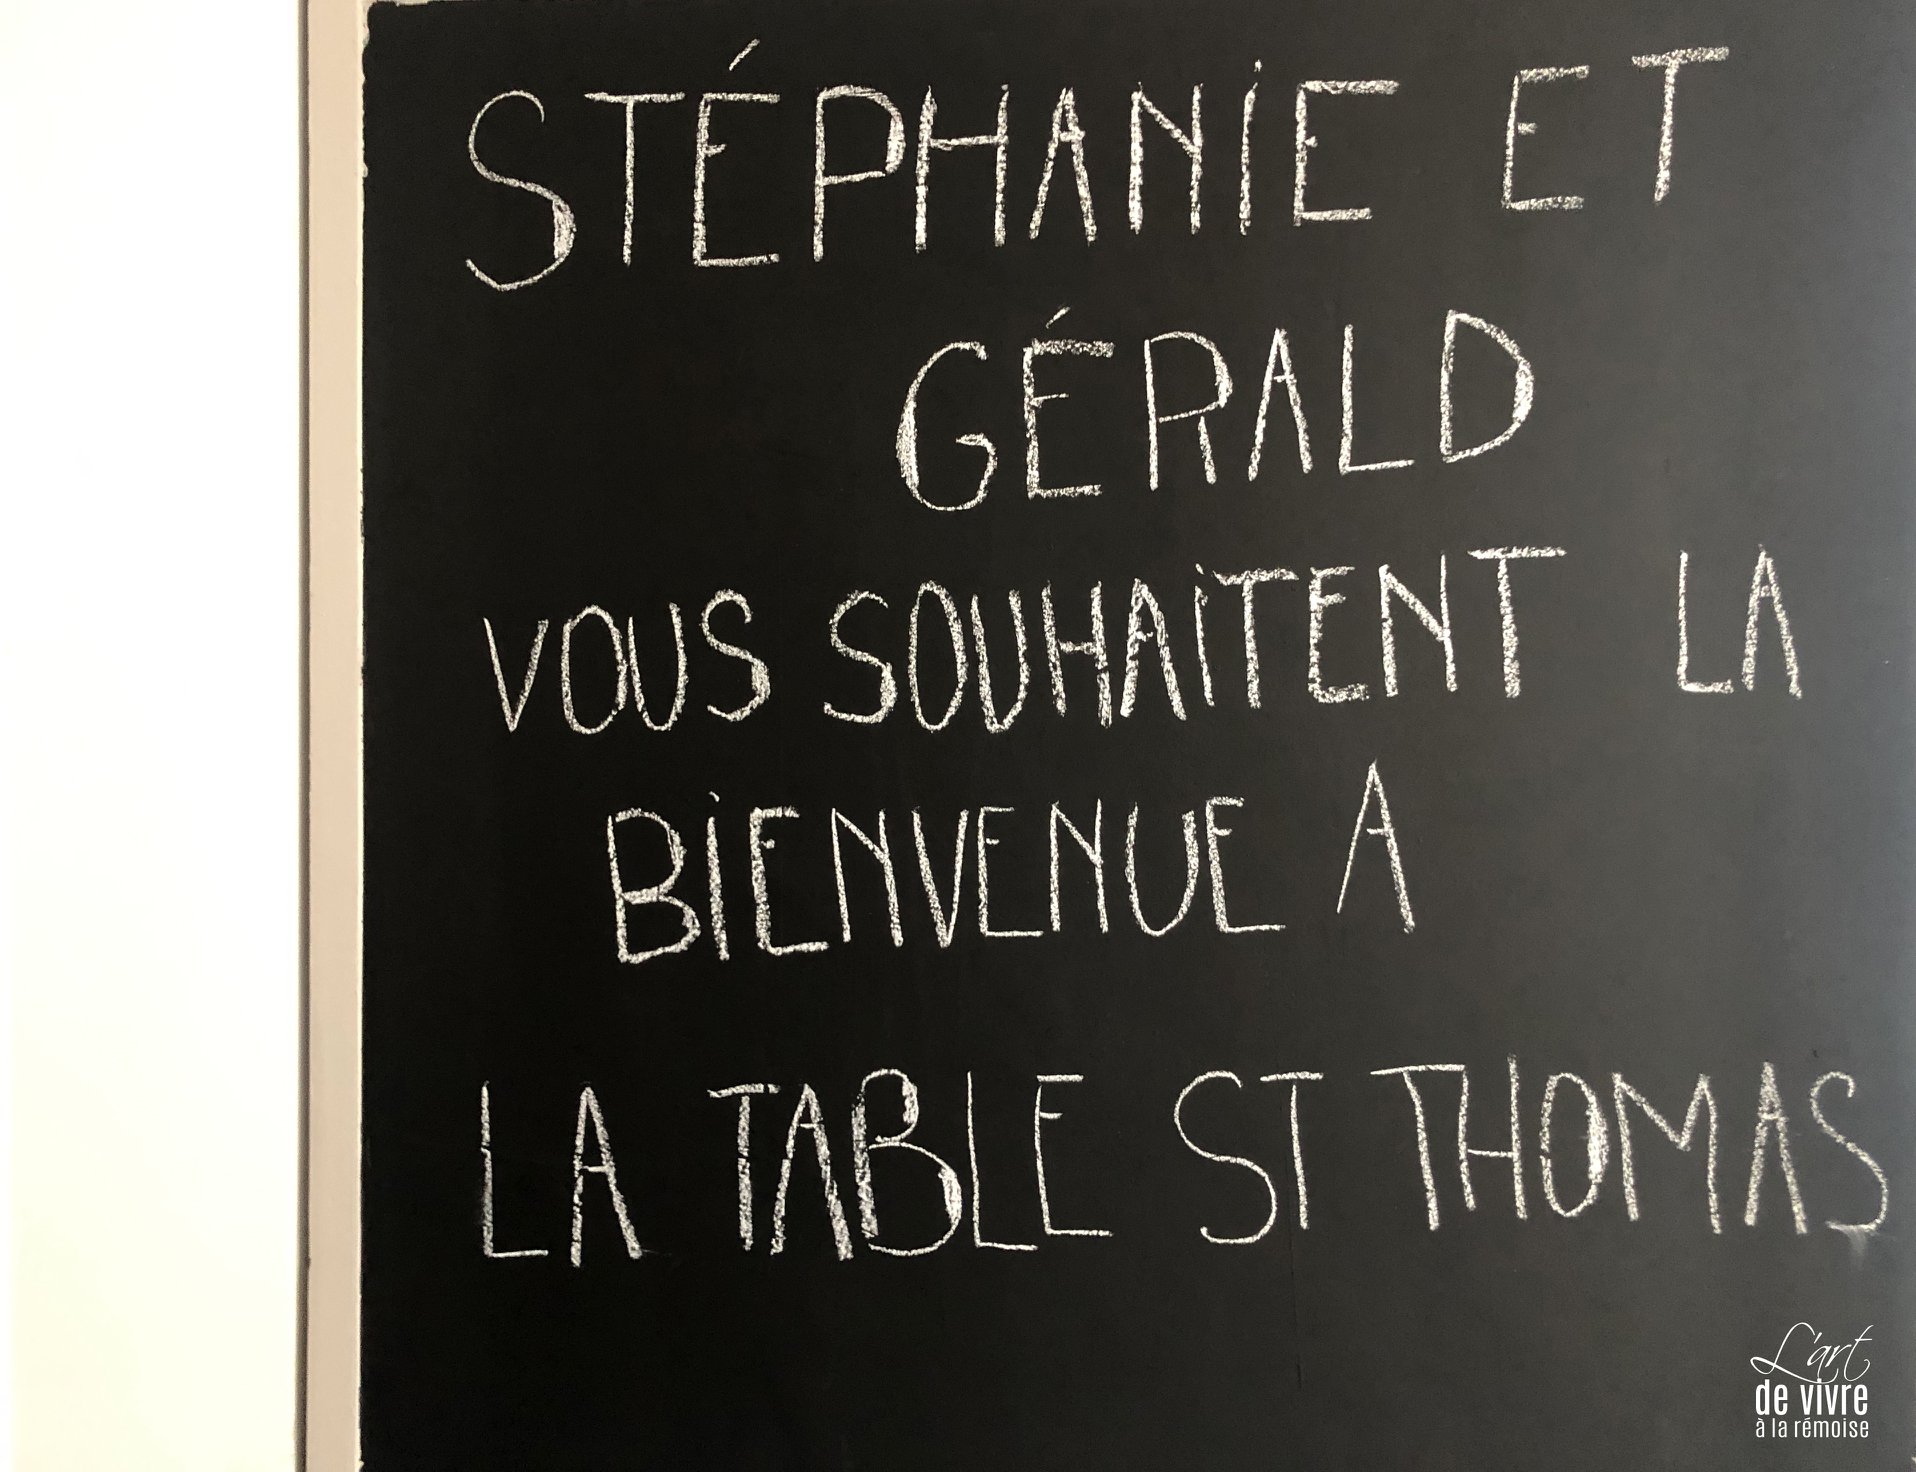 STÉPHANIE ET
GÉRALD
VOUS SOUHAITENT LA
BIENVENUE A
LA TABLE ST THOMAS
L'art
de vivre
à la rémoise